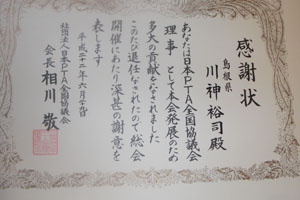 感謝状
島根県
川神裕司殿
あなたは日本PTA全国協議会
理事として本会発展のため
多大の貢献をなされました
このたび退任なされたので総会
開催にあたり深甚の謝意を
表します
平成二十二年六月十九日
社団法人日本PTA全国協議会
会長 相川敬